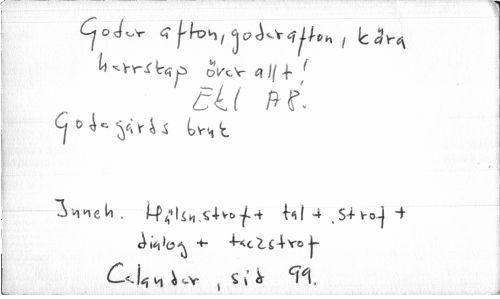 Goder afton, goder afton, kära
herrskap över allt!
Ekl A8.
Godegårds bruk
Inneh. Hälsn.strof + tal + strof +
dialog + tackstrof
Celander, sid 99.